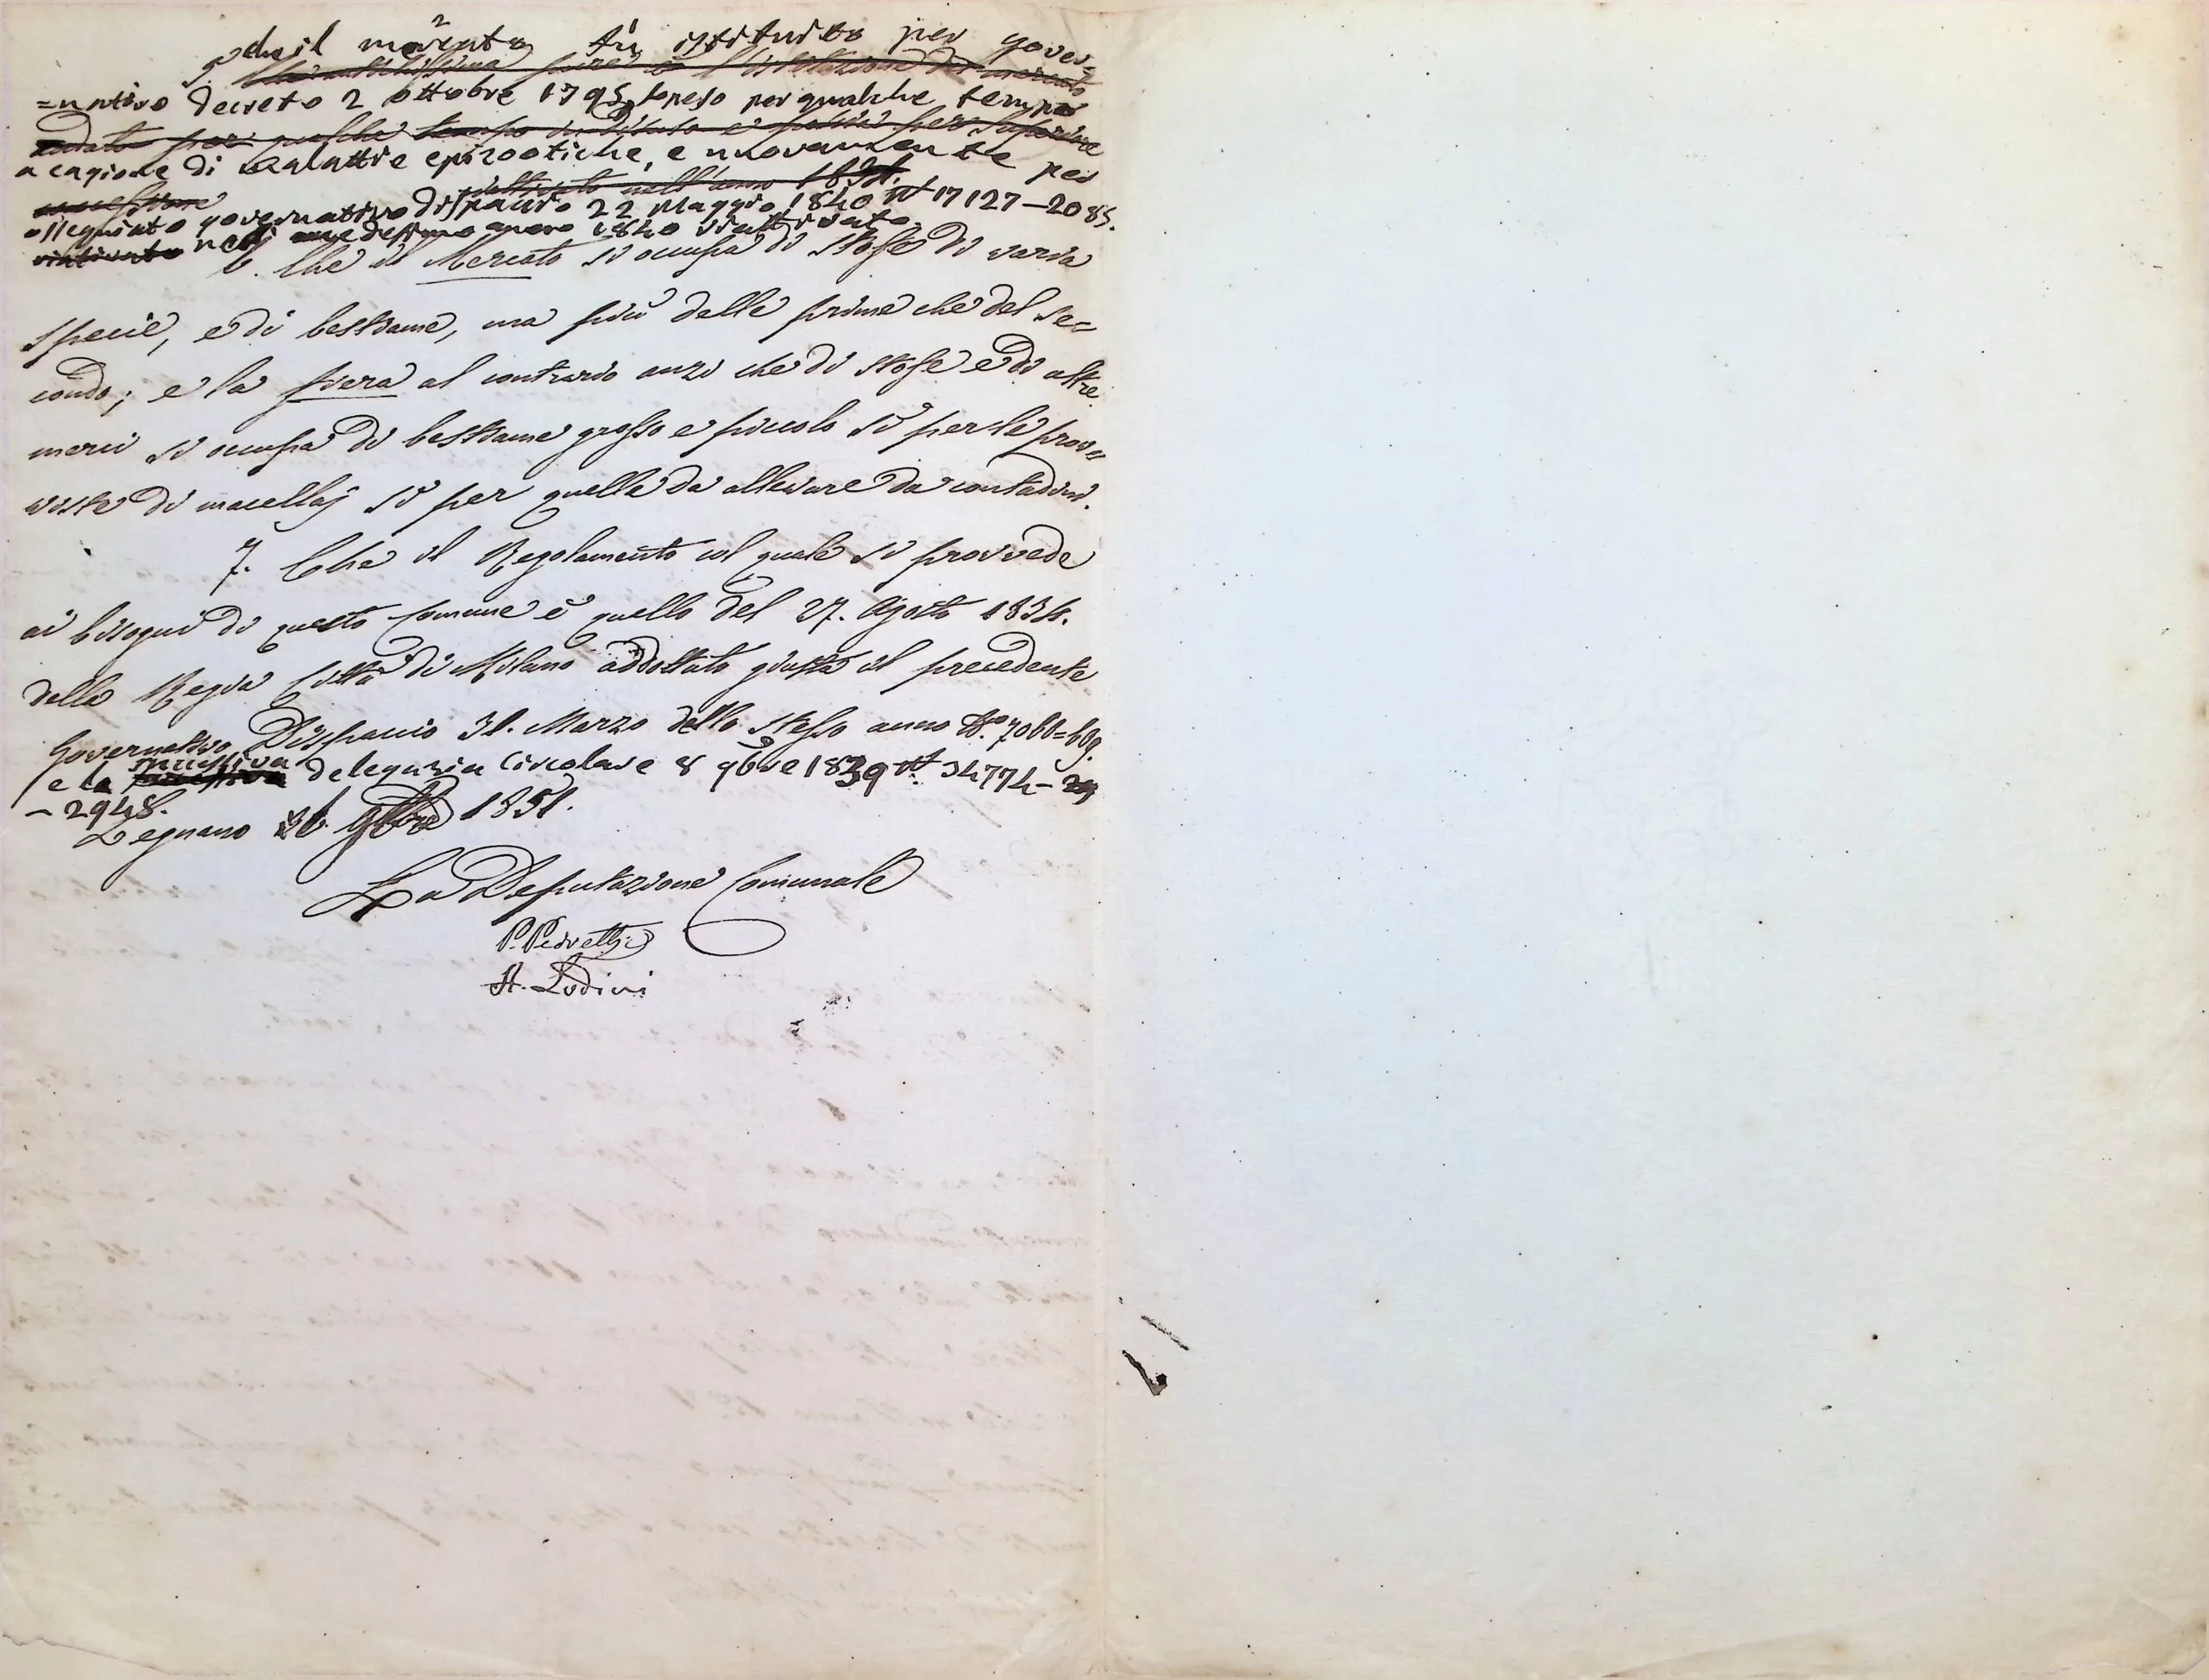 5° che il mercato fù istituito per gover=
=nativo Decreto 2 ottobre 1795 sospeso per qualche tempo
a cagione di malattie epizootiche, e nuovamente per
ossequiato governativo dispaccio 22 Maggio 1840 N° 17127–2085.
nel medesimo anno 1840 riattivato
6. Che il Mercato si occupa di stoffe di varia
specie, e di bestiame, ma più delle prime che del se=
condo; e la fiera al contrario anzi che di stoffe e di altre
merci si occupa di bestiame grosso e piccolo sì per le prov=
viste di macellaj sì per quelle da allevare da contadini.
7. Che il Regolamento col quale si provvede
ai bisogni di questo Comune è quello del 27. Agosto 1834.
della Regia Città di Milano addottato giusta il precedente
Governativo Dispaccio 31. Marzo dello stesso anno N°.
e la successiva delegatizia Circolare 8 9bre 1839 N° 34774–
–2948.
Legnano 9bre 1851.
La Deputazione Comunale
P. Pedretti
A. Lodini